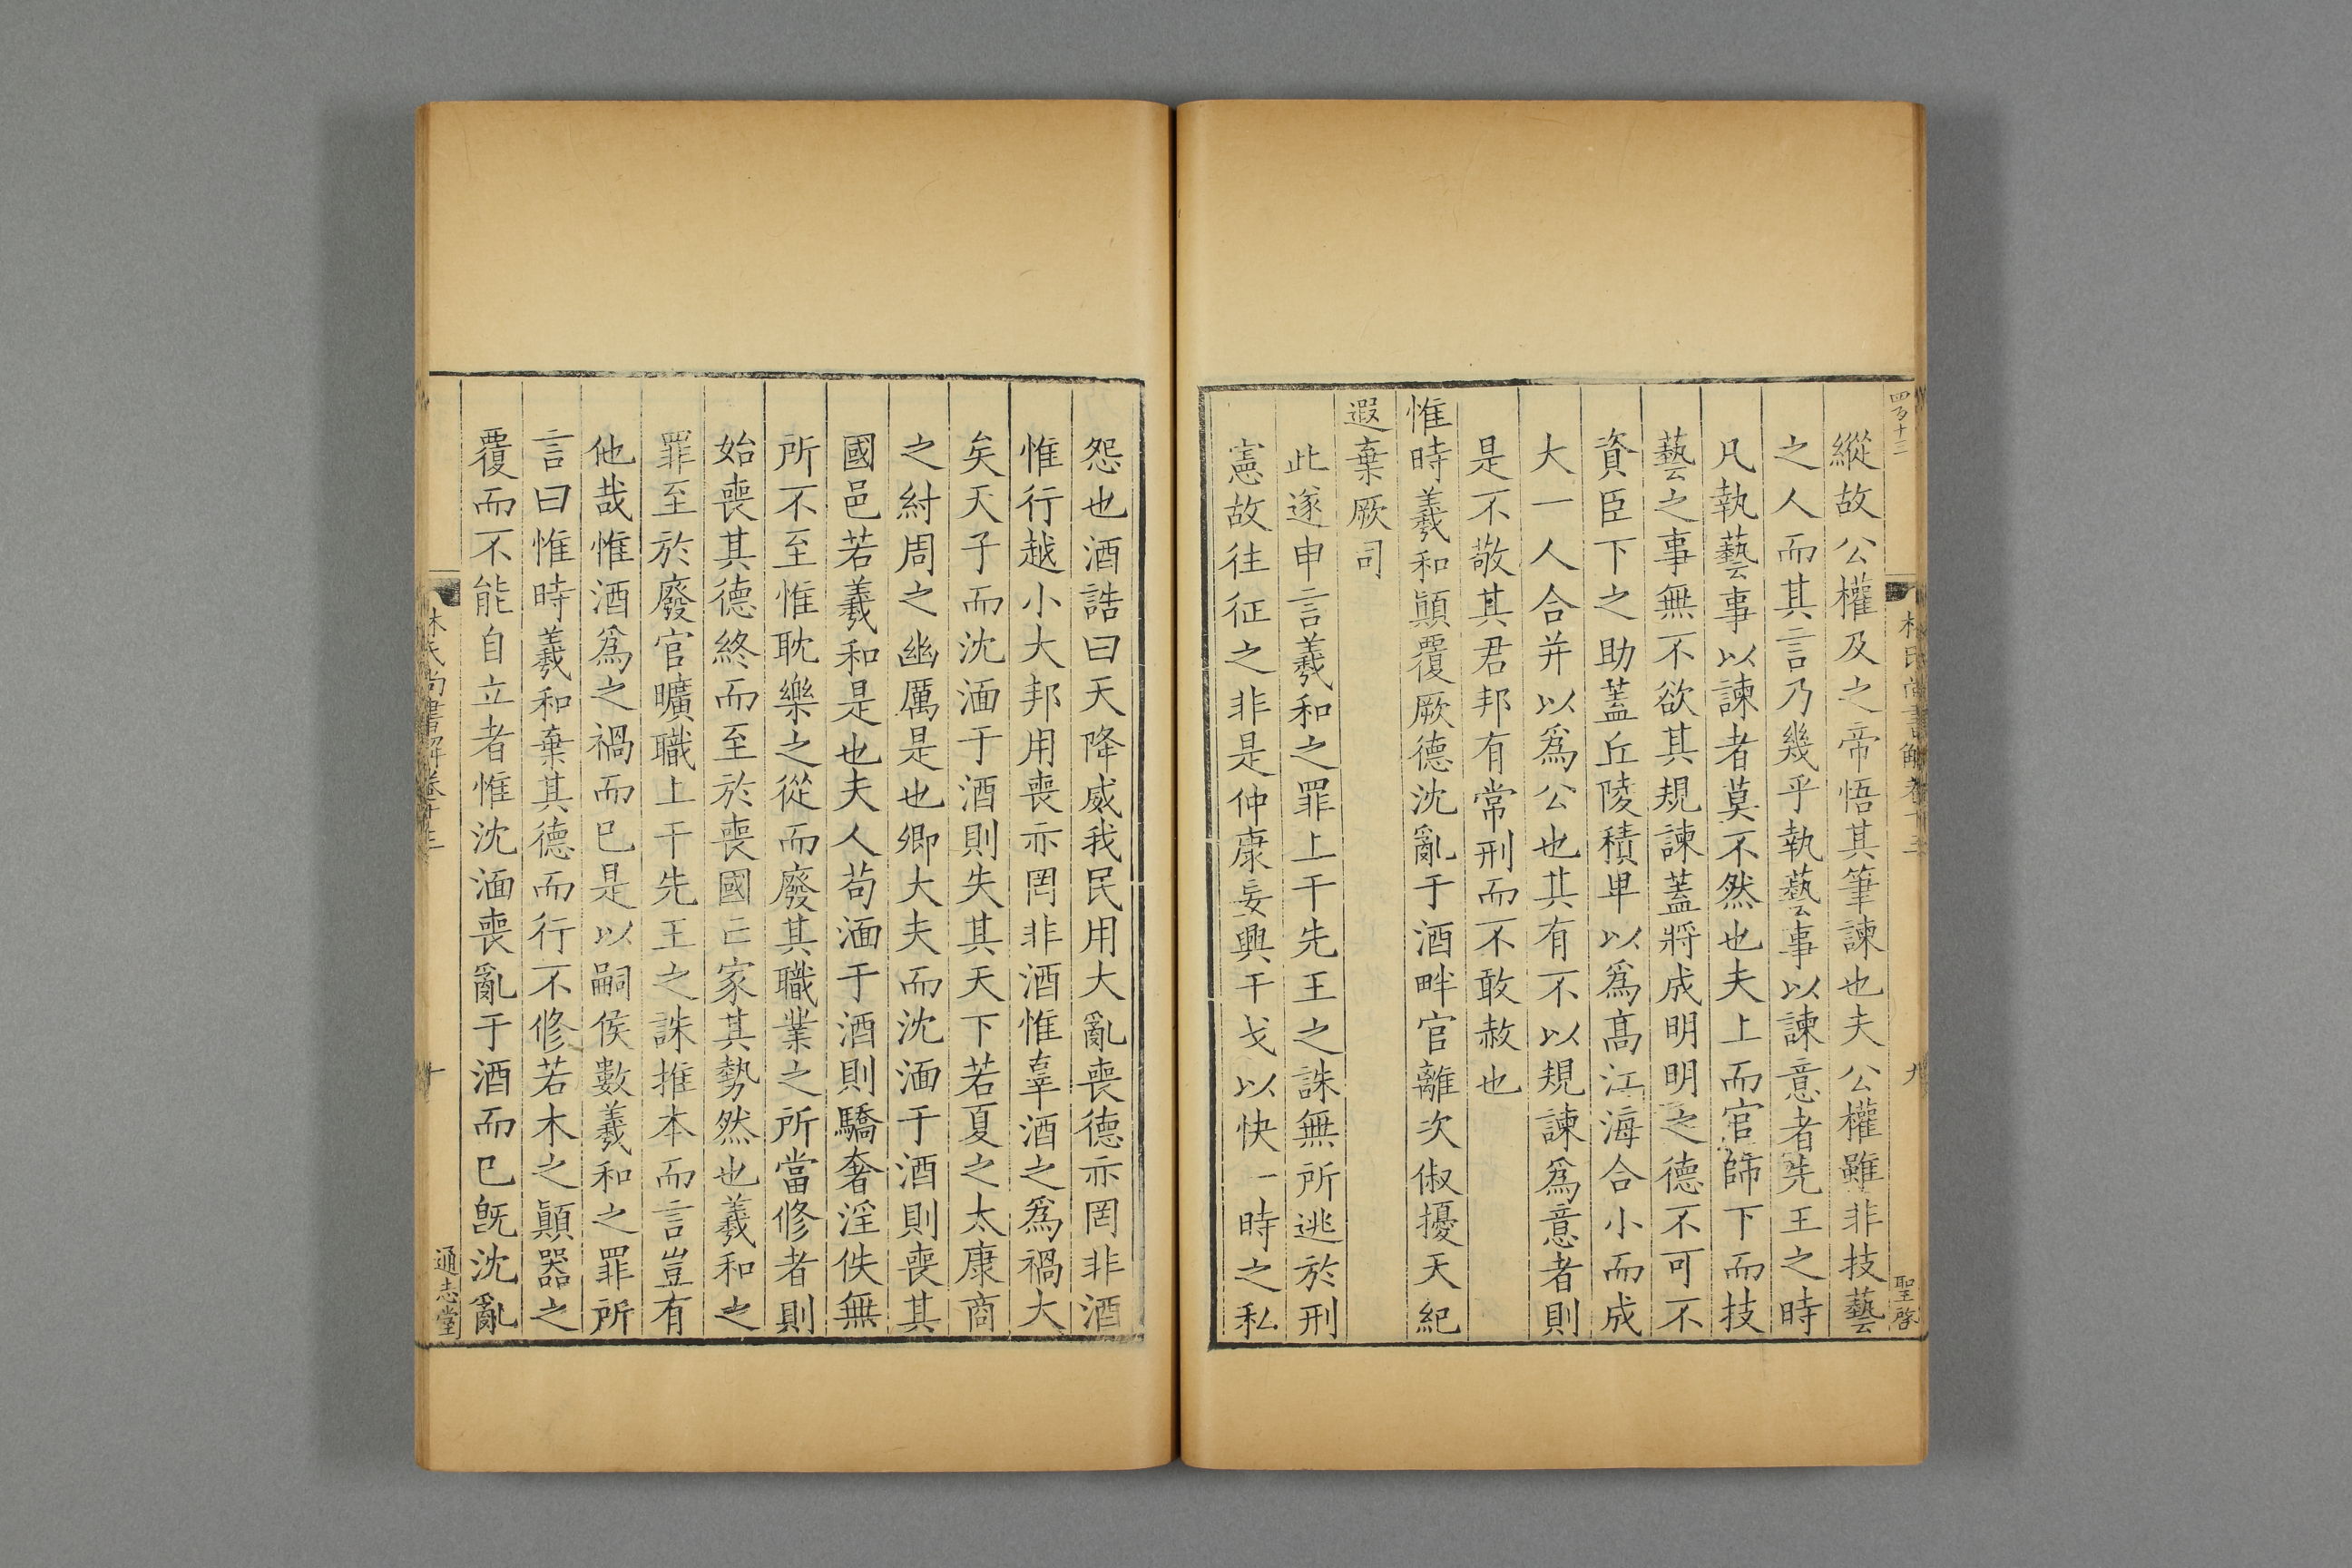 四百十三
林氏尚書解卷十三
九
聖啓
縱故公權及之帝悟其筆諫也夫公權雖非技藝
之人而其言乃幾乎執藝事以諫意者先王之時
凡執藝事以諫者莫不然也夫上而官師下而技
藝之事無不欲其規諫蓋將成明明之德不可不
資臣下之助蓋丘陵積卑以爲髙江海合小而成
大一人合并以爲公也其有不以規諫爲意者則
是不敬其君邦有常刑而不敢赦也
惟時羲和顚覆厥德沈亂于酒畔官離次俶擾天紀
遐棄厥司
此遂申言羲和之罪上干先王之誅無所逃於刑
憲故往征之非是仲康妄興干戈以快一時之私
怨也酒誥曰天降威我民用大亂喪德亦罔非酒
惟行越小大邦用喪亦罔非酒惟辜酒之爲禍大
矣天子而沈湎于酒則失其天下若夏之太康商
之紂周之幽厲是也卿大夫而沈湎于酒則喪其
國邑若羲和是也夫人苟湎于酒則驕奢淫佚無
所不至惟耽樂之從而廢其職業之所當修者則
始喪其德終而至於喪國亡家其勢然也羲和之
罪至於廢官曠職上干先王之誅推本而言豈有
他哉惟酒爲之禍而已是以嗣侯數羲和之罪所
言曰惟時羲和棄其德而行不修若木之顚器之
覆而不能自立者惟沈湎喪亂于酒而已旣沈亂
林氏尚書解卷十三
十
通志堂